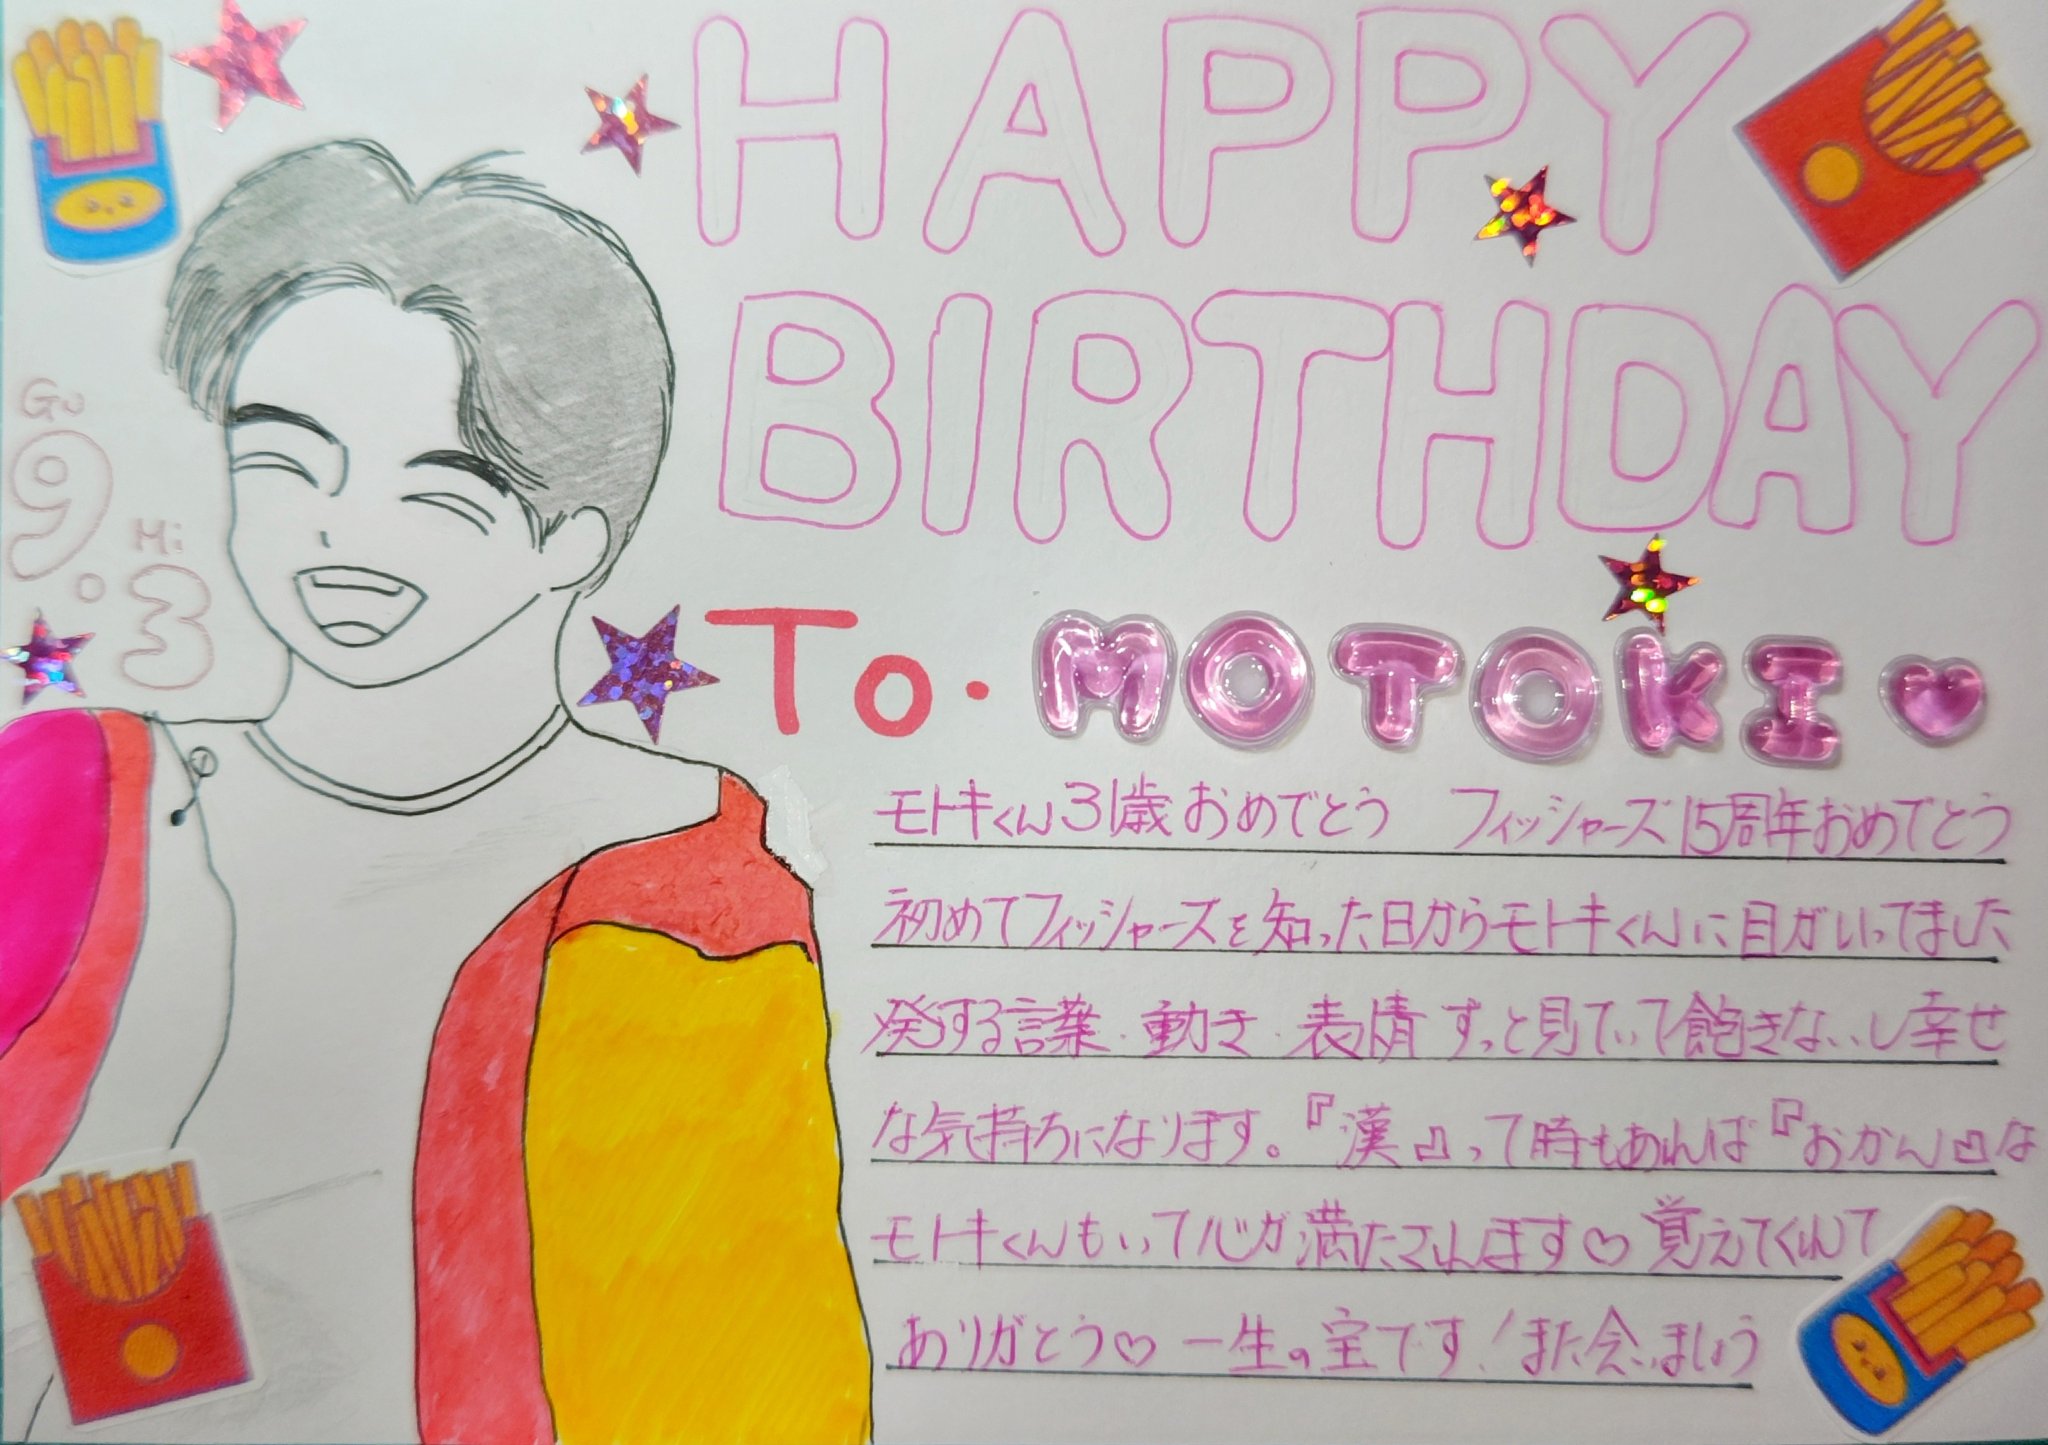 HAPPY
BIRTHDAY
Gu
9.
Mi
3
To. MOTOKI
モトキくん31歳おめでとう フィッシャーズ15周年おめでとう
初めてフィッシャーズを知った日からモトキくんに目がいってました
発する言葉・動き・表情 ずっと見ていて飽きないし幸せ
な気持ちになります。『漢』って時もあれば『おかん』な
モトキくんもいて心が満たされます♡覚えてくれて
ありがとう♡ 一生の宝です!また会いましょう